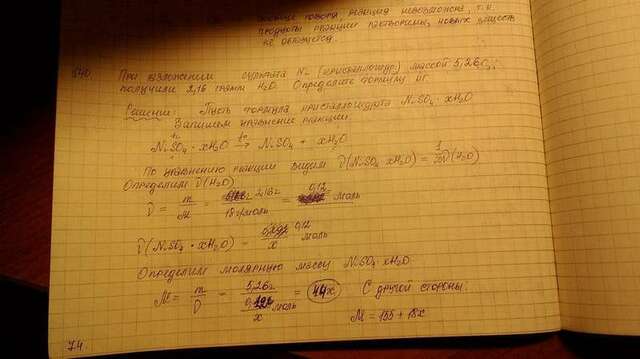 реакция невозможна, т.к.
продукты реакции растворимы, новых веществ
не образуется.
При разложении сульфата Ni (кристаллогидр.) массой 5,26 г
получили 2,16 грамм H₂O. Определите формулу кг.
Решение: Пусть формула кристаллогидрата NiSO₄·xH₂O
Запишем уравнение реакции:
NiSO₄·xH₂O →t° NiSO₄ + xH₂O
По уравнению реакции видим ν(NiSO₄·xH₂O) = 1/x ν(H₂O)
Определим ν(H₂O)
ν = m/M = 2,16 г/18 г/моль = 0,12 моль
ν(NiSO₄·xH₂O) = 0,12/x моль
Определим молярную массу NiSO₄·xH₂O
M = m/ν = 5,26 г / моль/x = 44x С другой стороны:
M = 155 + 18x
74